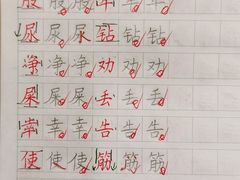 尿尿尿钻钻钻
净净净劝劝劝
屎屎屎丢丢丢
幸幸幸告告告
使使使筋筋筋